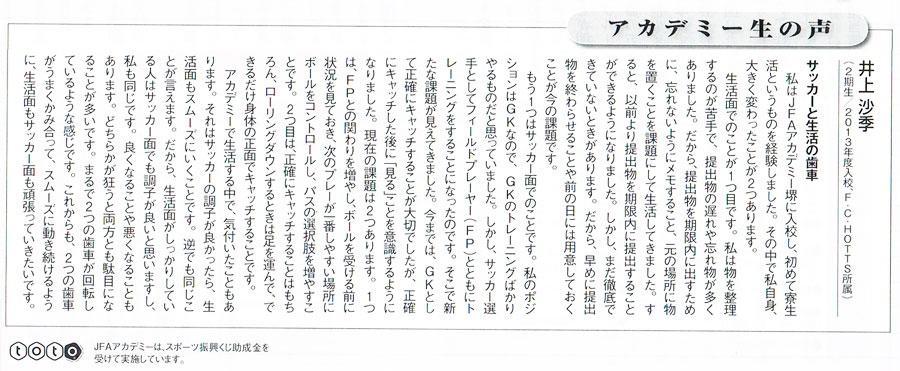 アカデミー生の声
井上 沙季
（2期生／2013年度入校、F・C・HOTTS所属）
サッカーと生活の歯車
　私はJFAアカデミー堺に入校し、初めて寮生
活というものを経験しました。その中で私自身、
大きく変わったことが2つあります。
　生活面でのことが1つ目です。私は物を整理
するのが苦手で、提出物の遅れや忘れ物が多く
ありました。だから、提出物を期限内に出すため
に、忘れないようにメモすること、元の場所に物
を置くことを課題にして生活してきました。す
ると、以前より提出物を期限内に提出すること
ができるようになりました。しかし、まだ徹底で
きていないときがあります。だから、早めに提出
物を終わらせることや前の日には用意しておく
ことが今の課題です。
　もう1つはサッカー面でのことです。私のポジ
ションはGKなので、GKのトレーニングばかり
やるものだと思っていました。しかし、サッカー選
手としてフィールドプレーヤー（FP）とともにト
レーニングをすることになったのです。そこで新
たな課題が見えてきました。今までは、GKとし
て正確にキャッチすることが大切でしたが、正確
にキャッチした後に「見る」ことを意識するように
なりました。現在の課題は2つあります。1つ
は、FPとの関わりを増やし、ボールを受ける前に
状況を見ておき、次のプレーが一番しやすい場所に
ボールをコントロールし、パスの選択肢を増やすこ
とです。2つ目は、正確にキャッチすることはもち
ろん、ローリングダウンするときは足を運んで、で
きるだけ身体の正面でキャッチすることです。
　アカデミーで生活する中で、気付いたこともあ
ります。それはサッカーの調子が良かったら、生
活面もスムーズにいくことです。逆でも同じこ
とが言えます。だから、生活面がしっかりしてい
る人はサッカー面でも調子が良いと思いますし、
私も同じです。良くなることや悪くなることも
あります。どちらかが狂うと両方とも駄目にな
ることが多いです。まるで2つの歯車が回転し
ているような感じです。これからも、2つの歯車
がうまくかみ合って、スムーズに動き続けるよう
に、生活面もサッカー面も頑張っていきたいです。
toto
JFAアカデミーは、スポーツ振興くじ助成金を
受けて実施しています。